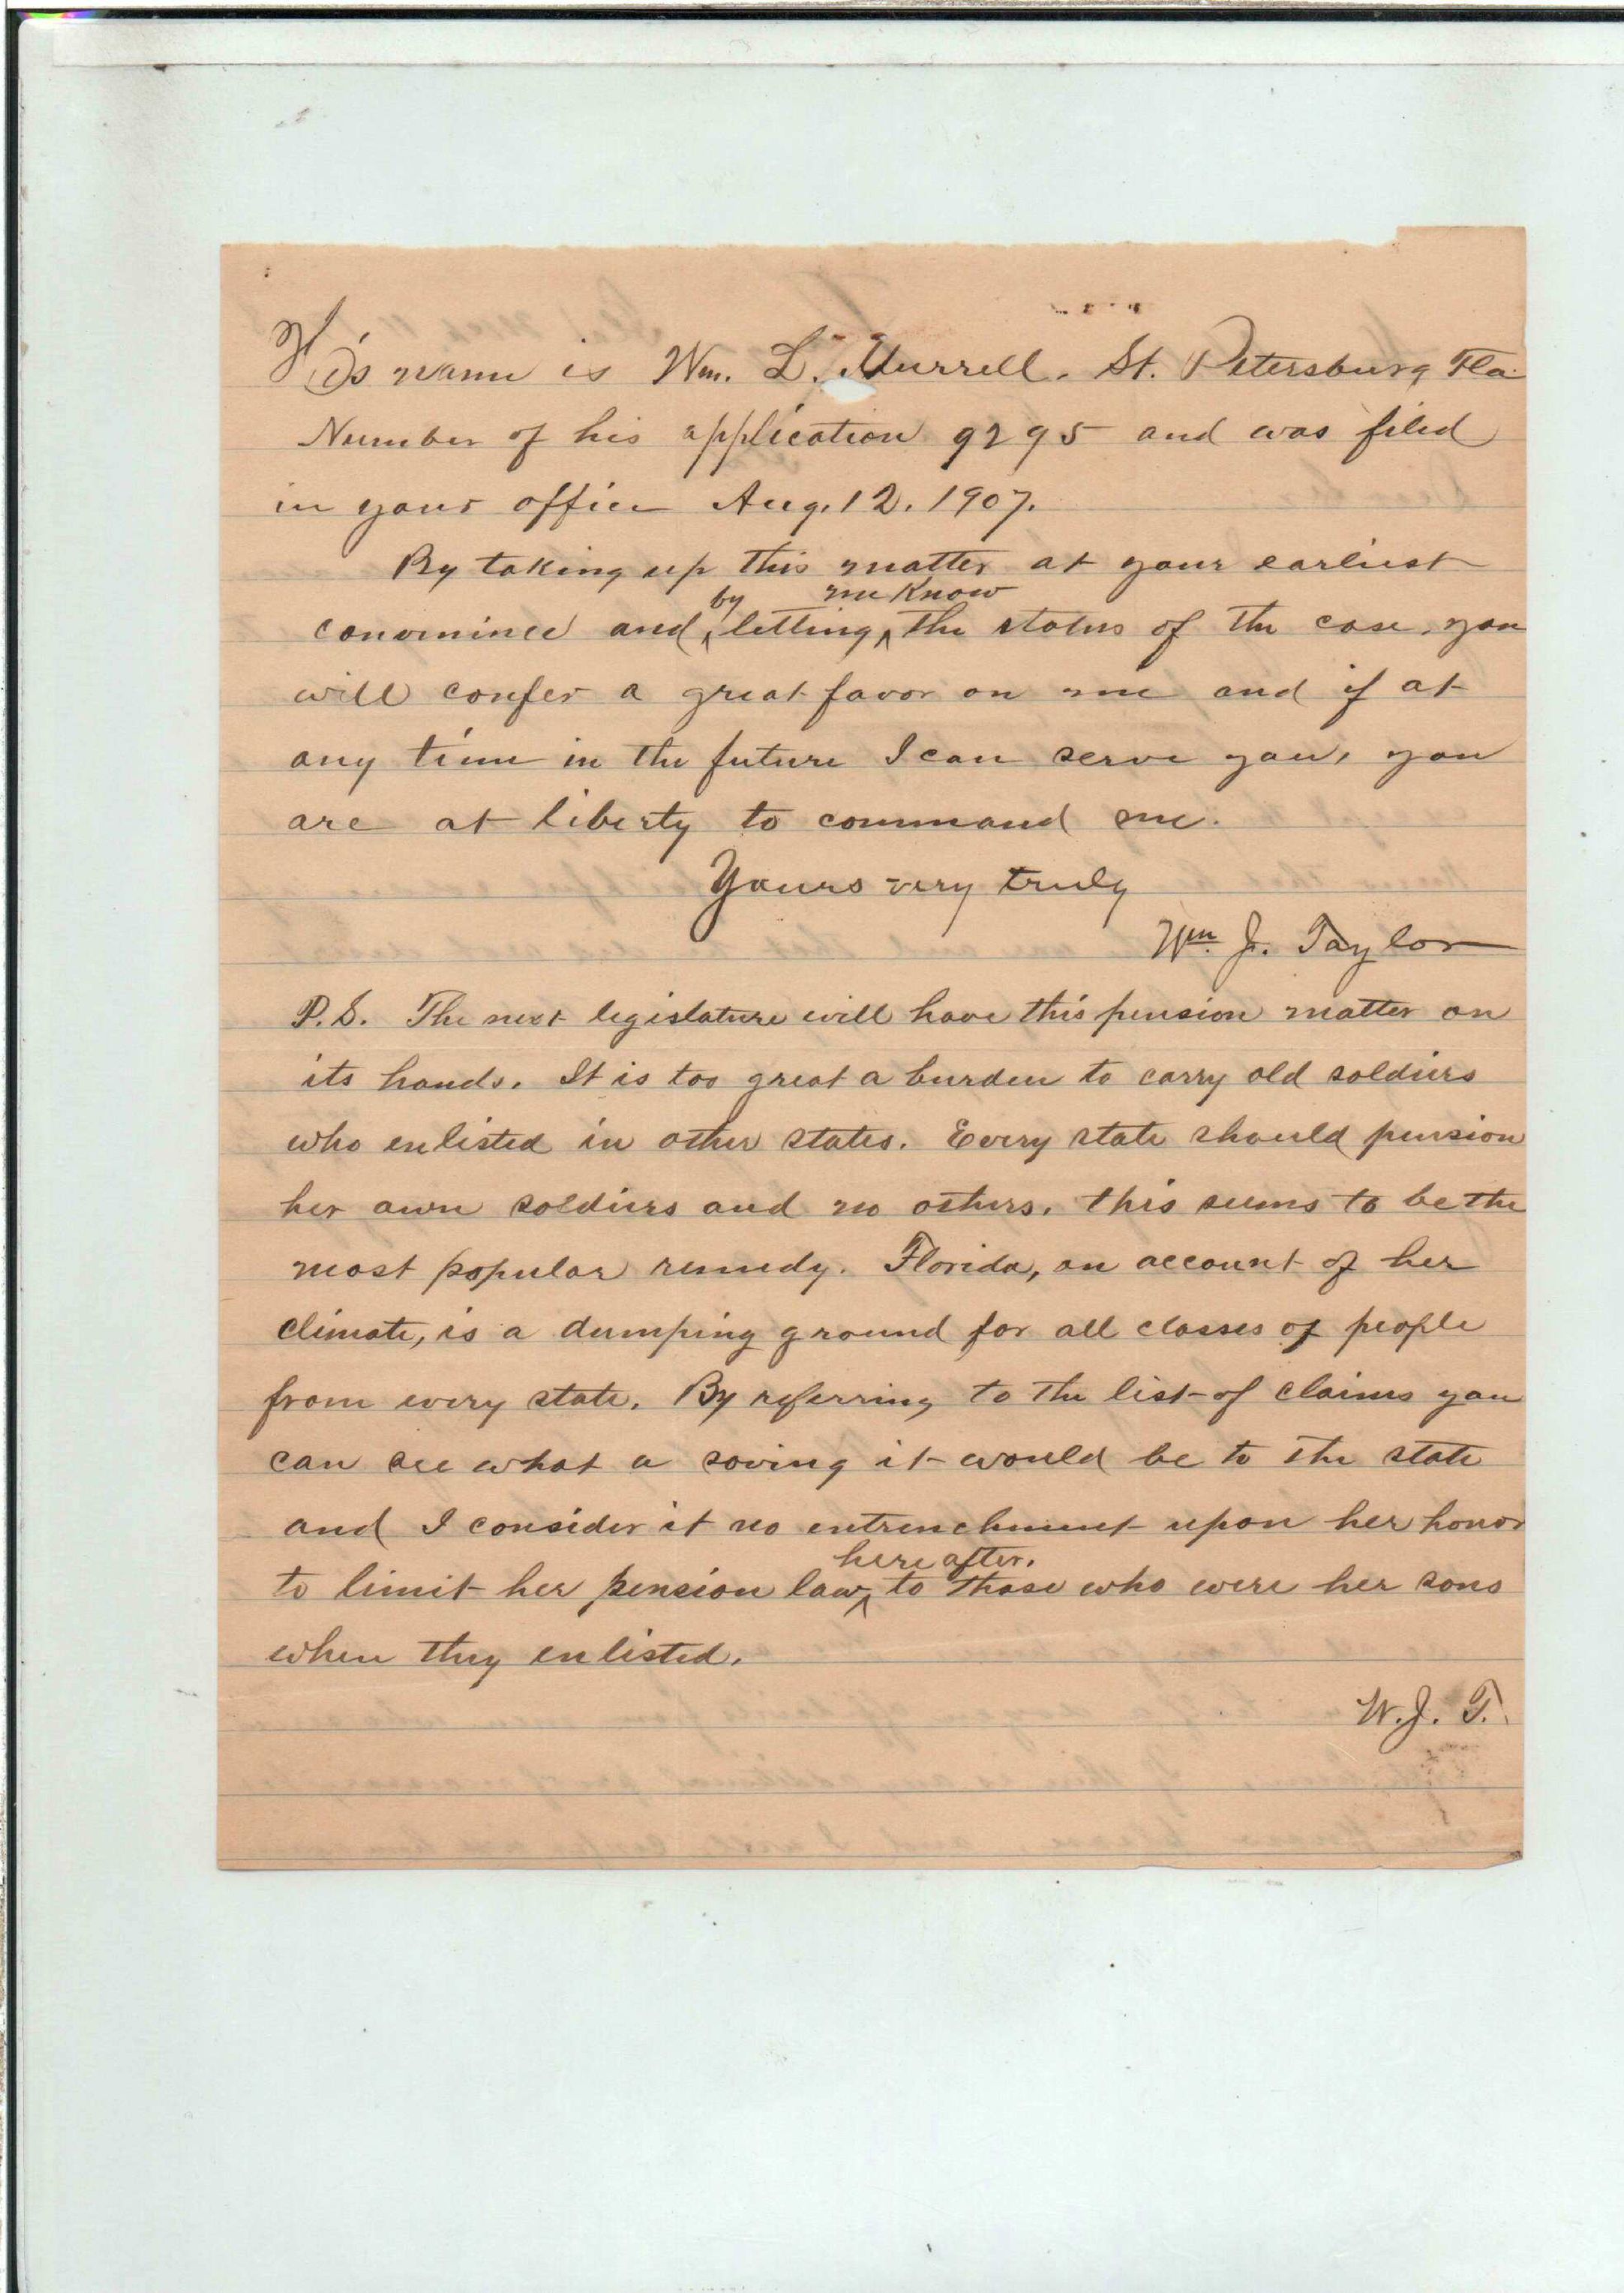 His name is Wm. L. Murrell. St. Petersburg Fla.
Number of his application 9295 and was filed
in your office Aug. 12. 1907.
By taking up this matter at your earliest
by me know
convenience and letting the status of the case, you
will confer a great favor on me and if at
any time in the future I can serve you, you
are at liberty to command me.
Yours very truly
Wm. J. Taylor
P.S. The next legislature will have this pension matter on
its hands. It is too great a burden to carry old soldiers
who enlisted in other states. Every state should pension
her own soldiers and no others, this seems to be the
most popular remedy. Florida, on account of her
climate, is a dumping ground for all classes of people
from every state. By referring to the list of claims you
can see what a saving it would be to the state
and I consider it no entrenchment upon her honor
here after.
to limit her pension law to those who were her sons
when they enlisted.
W. J. T.